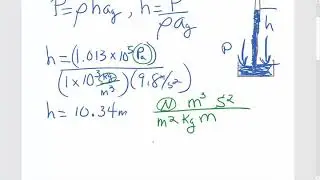 P = ρhag , h = P / ρag
h = (1.013 × 10⁵ Pa) / (1 × 10³ kg/m³)(9.8 m/s²)
h = 10.34 m
N m³ s² / m² kg m
P
h